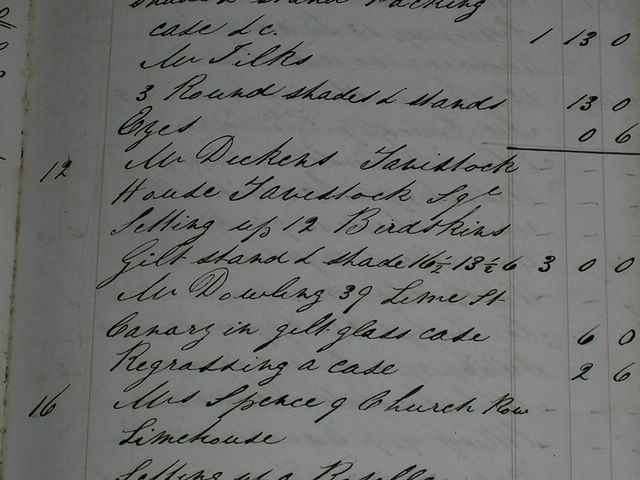 shades & stand Packing
case &c. 1 13 0
Mr Tilks
3 Round shades & stands 13 0
Eyes 0 6
12 Mr Dickens Tavistock
House Tavistock Sqe
Setting up 12 Birdskins
Gilt stand & shade 16½ 13½ 6 3 0 0
Mr Dowling 39 Lime St
Canary in gilt glass case 6 0
Regrassing a case 2 6
16 Mrs Spence 9 Church Row
Limehouse
Setting up a